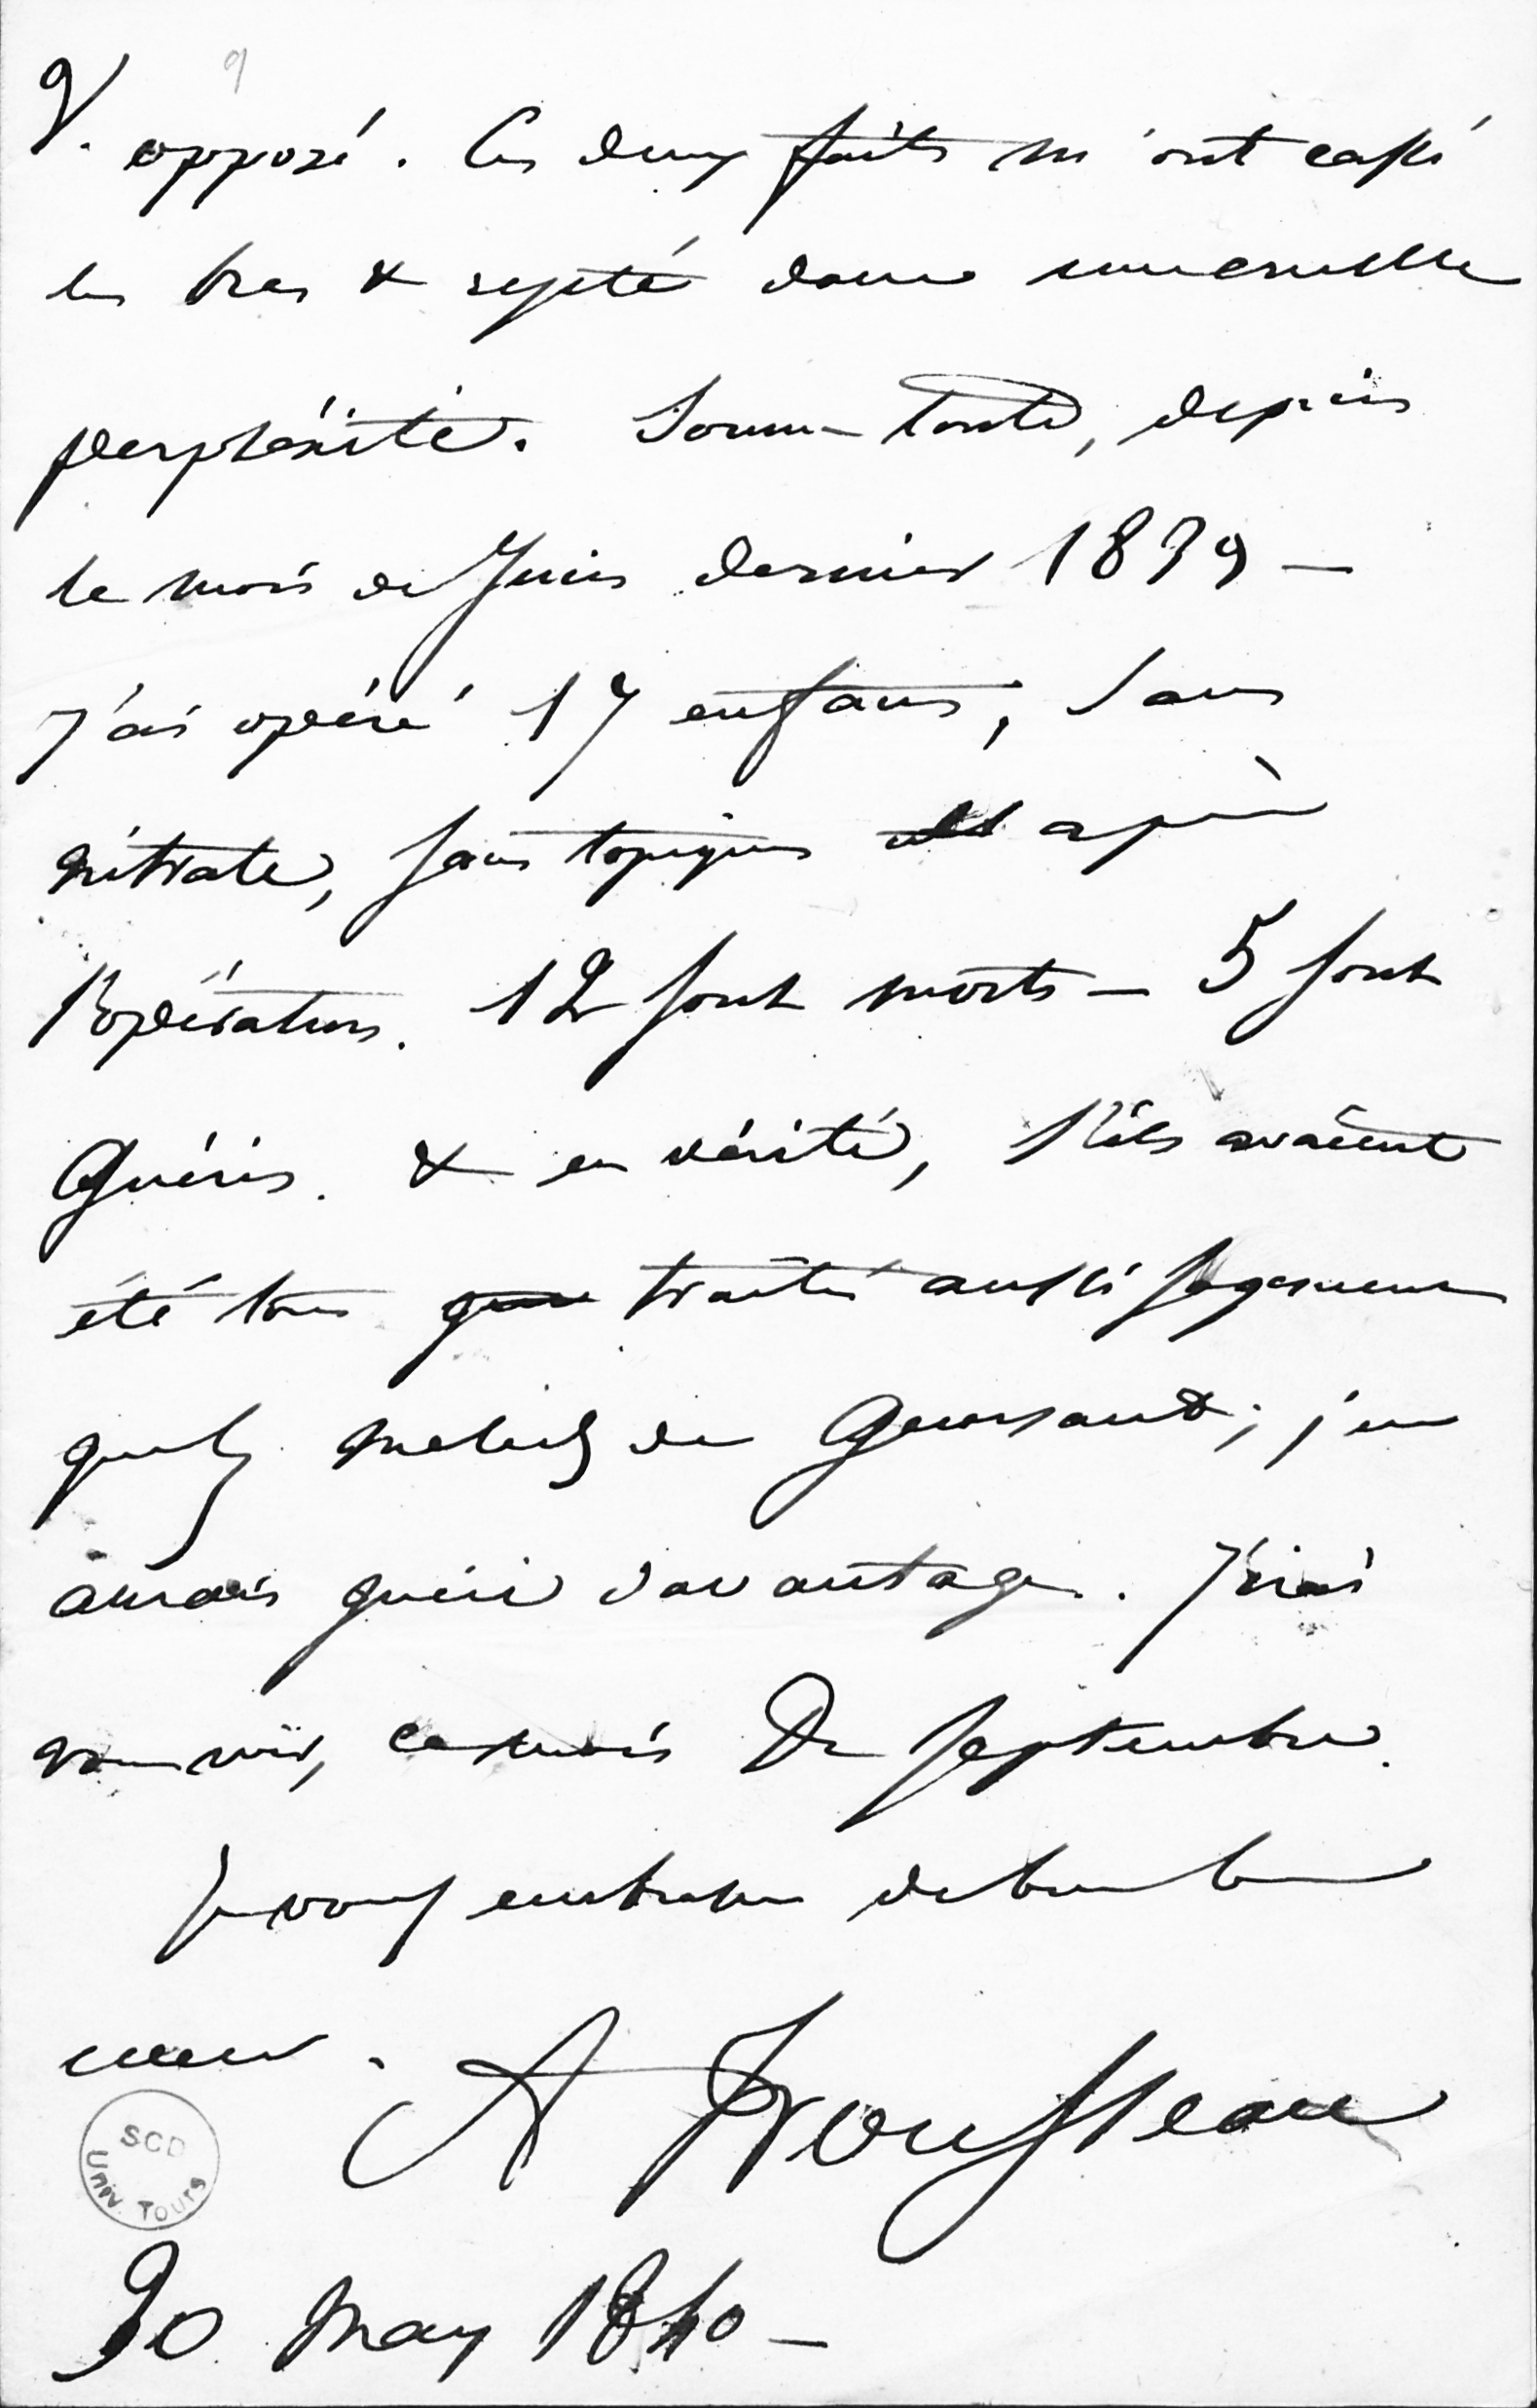 9
V. opposé. Ces deux faits m'ont cassé
les bras & rejeté dans une cruelle
perplexité. Somme toute, depuis
le mois de Juin dernier 1839 —
J'ai opéré 17 enfans, sans
nitrate, sans topiques après
l'opération. 12 sont morts — 5 sont
Guéris. & en vérité, s'ils avaient
été tous traités aussi sagement
que de Guersant; j'en
aurais guéri davantage. J'irai
vous voir, ce mois De septembre.
Je vous embrasse de bon
coeur. A Trousseau
SCD
Univ. Tours
30 May 1840 —